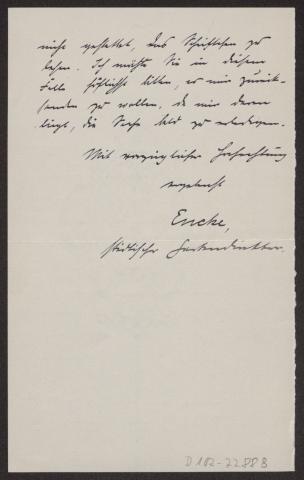 nicht gestattet, das Schriftchen zu
lesen. Ich möchte Sie in diesem
Falle höflichst bitten, es mir zurück-
senden zu wollen, da mir daran
liegt, die Sache bald zu erledigen.
Mit vorzüglicher Hochachtung
ergebenst
Encke,
städtischer Gartendirektor.
D 102-22888